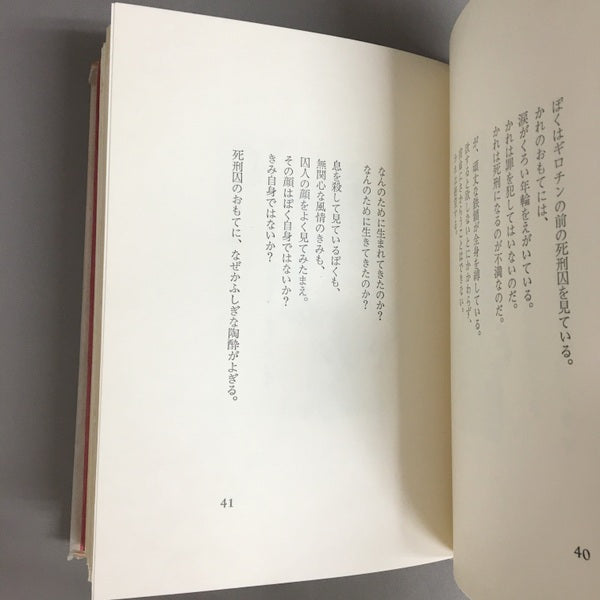 ぼくはギロチンの前の死刑囚を見ている。
かれのおもてには、
涙がくろい年輪をえがいている。
かれは罪を犯してはいないのだ。
かれは死刑になるのが不満なのだ。
が、頑丈な鉄鎖が全身を縛している。
欲すると欲しないとにかかわらず、
できない。
40
なんのために生まれてきたのか?
なんのために生きてきたのか?
息を殺して見ているぼくも、
無関心な風情のきみも、
囚人の顔をよく見てみたまえ。
その顔はぼく自身ではないか?
きみ自身ではないか?
死刑囚のおもてに、なぜかふしぎな陶酔がよぎる。
41